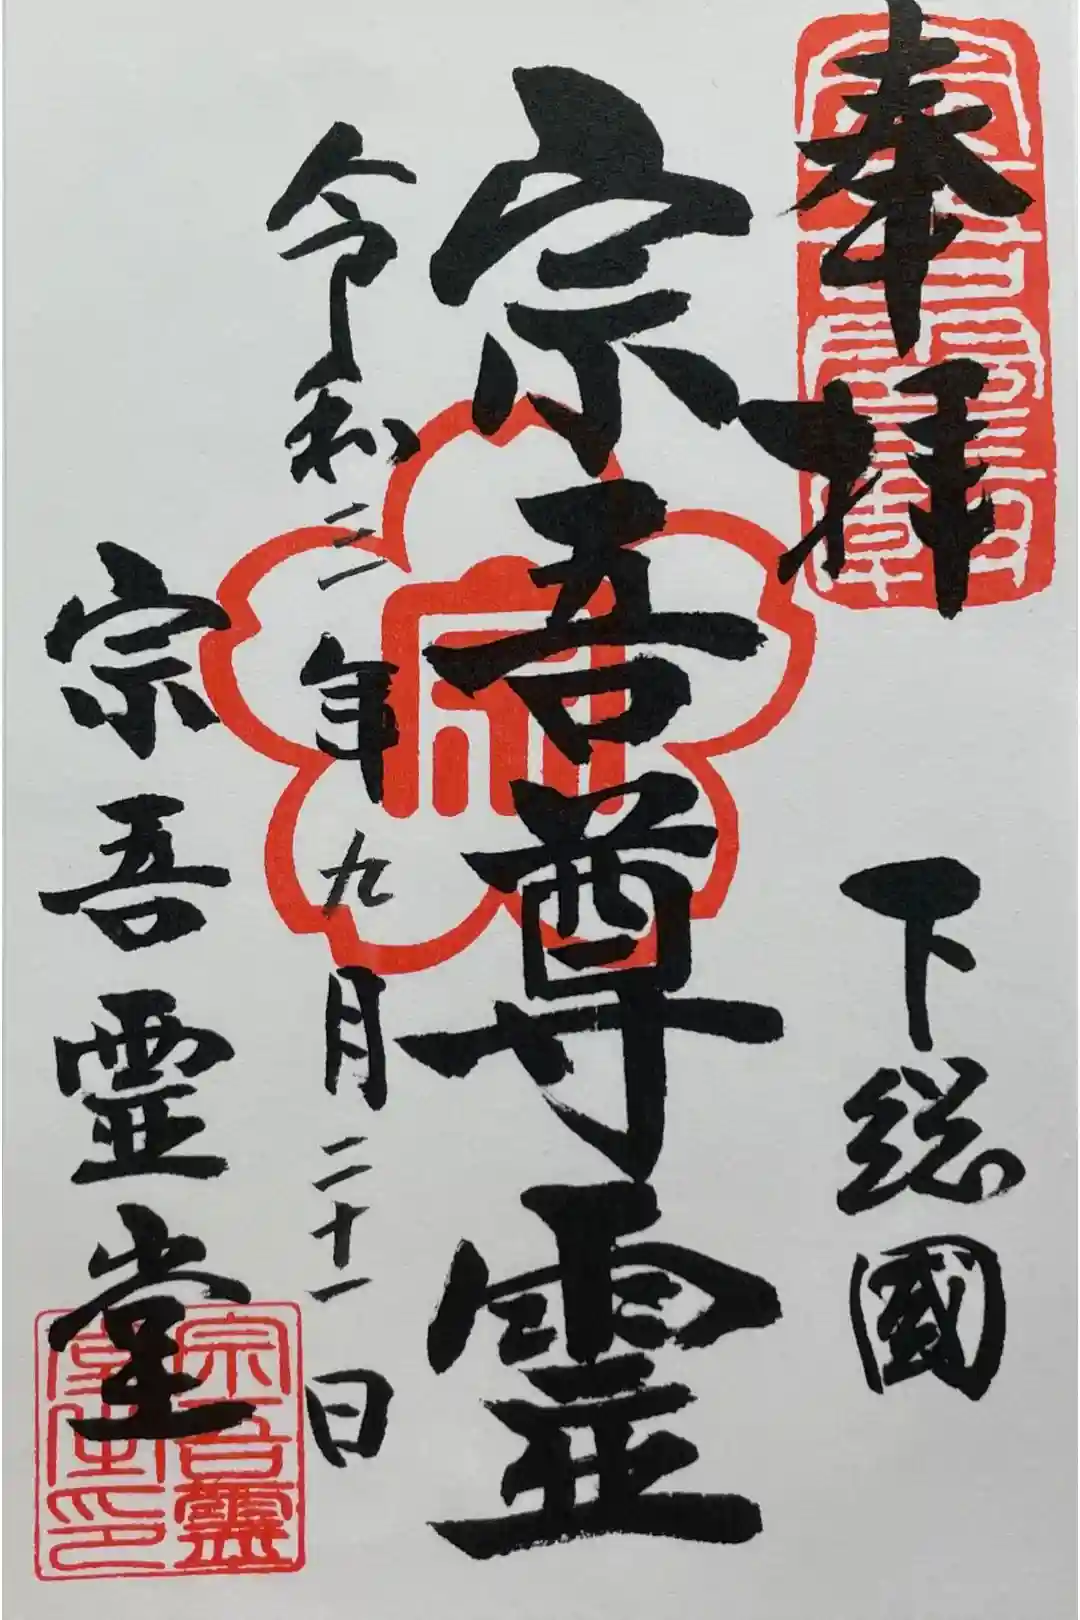 奉拝
下総國
宗吾尊霊
令和三年九月二十一日
宗吾霊堂
宗吾霊